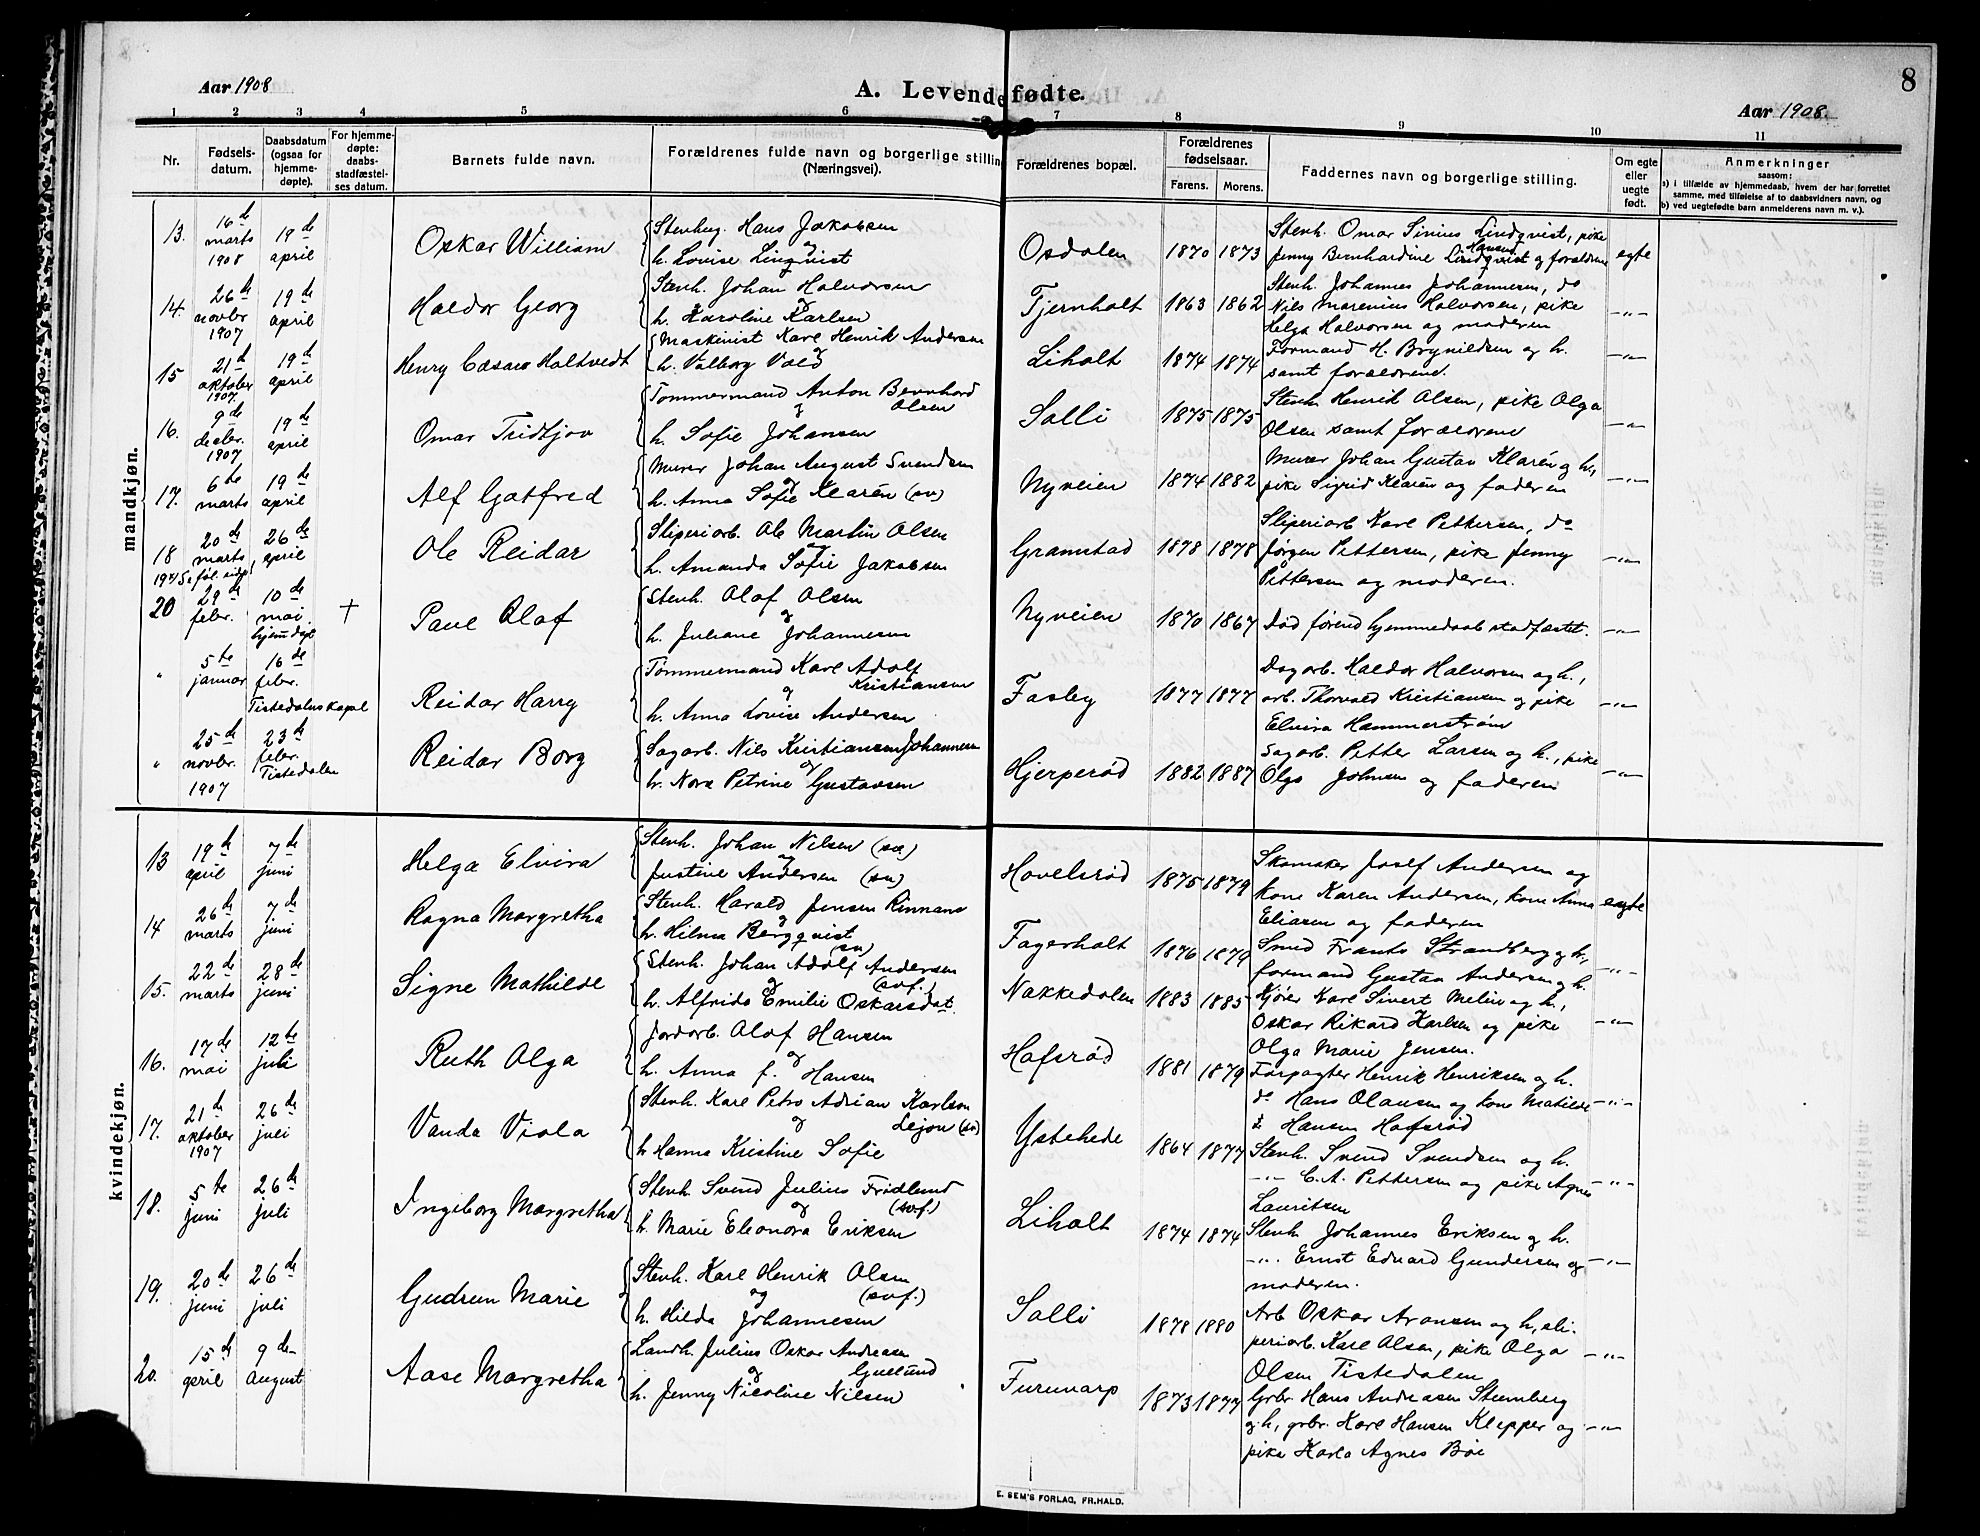 8
Aar 1908
A. Levendefødte.
Aar 1908.
1 2 3 4 5 6 7 8 9 10 11
Nr.
Fødsels-
datum.
Daabsdatum
(ogsaa for
hjemme-
døpte).
For hjemme-
døpte:
daabs-
stadfæstel-
ses datum.
Barnets fulde navn.
Forældrenes fulde navn og borgerlige stilling
(Næringsvei).
Forældrenes bopæl.
Forældrenes
fødselsaar.
Farens. Morens.
Faddernes navn og borgerlige stilling.
Om egte
eller
uegte
født.
Anmerkninger
saasom:
a) i tilfælde av hjemmedaab, hvem der har forrettet
samme, med tilføielse af to daabsvidners navn, og
b) ved uegtefødte barn anmelderens navn m. v.).
mandkjøn.
13. 16de marts 1908 19de april Oskar William
Stenhug. Hans Jakobsen
og
h. Lovise Linqvist
Osdalen 1870 1873
Stenh. Omar Sinius Lindqvist, pike
Hansen
Jenny Bernhardine Lindqvist og forældrene egte
14. 26de novbr 1907 19de april Haldor Georg
Stenh. Johan Halvorsen
og
h. Karoline Karlsen
Tjernholt 1863 1862
Stenh. Johannes Johannesen, do
Nils Marenius Halvorsen, pike
Helga Halvorsen og moderen -"-
15 21de oktober 1907. 19de april Henry Cæsar Holtvedt
Maskinist Karl Henrik Andersen
og
h. Valborg Vold
Liholt 1874 1874
Formand H. Brynildsen og h.
samt forældrene. -"-
16. 9de decbr. 1907 19de april Omar Fridtjov
Tømmermand Anton Bernhard
Olsen
og
h. Sofie Johansen
Solli 1875 1875
Stenh Henrik Olsen, pike Olga
Olsen samt forældrene -"-
17. 6te marts 19de april Alf Gotfred
Murer Johan August Svendsen
og
h. Anna Sofie Klarén (sv)
Nyveien 1874 1882
Murer Johan Gustav Klarén og h,
pike Sigrid Klarén og faderen -"-
18 20de marts 26de april Ole Reidar
Sliperiarb. Ole Martin Olsen
og
h. Amanda Sofie Jakobsen
Gramstad 1878 1878
Sliperiarb Karl Pettersen, do
Jørgen Pettersen, pike Jenny
Pettersen og moderen. -"-
19)
20 29de febr. 10de mai. hjemdøpt † Paul Olaf
Stenh. Olaf Olsen
og
h. Juliane Johannesen
Nyveien 1870 1867
Død førend hjemmedaab stadfæstet. -"-
" 5te januar 16de febr. Tistedalens kapel Reidar Harry
Tømmermand Karl Adolf
Kristiansen
og
h. Anna Lovise Andersen
Fasby 1877 1877
Dagarb. Haldor Halvorsen og h.,
arb. Thorvald Kristiansen og pike
Elvira Hammerstrøm -"-
" 25de novbr. 1907 23de febr. Tistedalen Reidar Borg
Sagarb. Nils Kristiansen Johannesen
og
h. Nora Petrine Gustavsen
Hjerperød 1882 1887
Sagarb. Petter Larsen og h., pike
Olga Johnsen og faderen -"-
kvindekjøn.
13 19de april 7de juni Helga Elvira
Stenh. Johan Nilsen (sv.)
og
Justine Andersen (sv)
Hovelsrød 1875 1879
Skomaker Josef Andersen og
kone Karen Andersen, kone Anna
Eliasen og faderen egte
14 26de marts 7de juni Ragna Margretha
Stenh. Harald Jensen Rinnans
og
h. Hilma Bergqvist
(sv)
Fagerholt 1876 1879
Smed Frants Strandberg og h,
formand Gustav Andersen og h. -"-
15. 22de marts 28de juni Signe Mathilde
Stenh. Johan Adolf Andersen
og (svf.)
h. Alfrida Emilie Oskarsdat.
Nakkedalen 1883 1885
Kjører Karl Sivert Melin og h,
Oskar Rikard Karlsen og pike
Olga Marie Jensen. -"-
16. 17de mai 12te juli Ruth Olga
Jordarb. Olaf Hansen
og
h. Anna f. Hansen
Hafsrød 1881 1879
Forpagter Henrik Henriksen og h.
do Hans Olausen og kone Matilde
Hansen Hafsrød -"-
17. 21de oktober 1907 26de juli Vanda Viola
Stenh. Karl Petro Adrian Karlson
og Lejon (sv)
h Hanna Kristine Sofie
Ystehede 1864 1877
Stenh. Svend Svendsen og h.
-"- C. A. Pettersen og pike Agnes
Lauritsen -"-
18. 5te juni 26de juli Ingeborg Margretha
Stenh Svend Julius Fridlund
og (svf.)
h. Marie Eleonora Eriksen
Liholt 1874 1874
Stenh Johannes Eriksen og h.
-"- Ernst Edvard Gundersen og
moderen. -"-
19. 20de juni 26de juli Gudrun Marie
Stenh. Karl Henrik Olsen
og (svf.)
h. Hilda Johannesen
Solli 1878 1880
Arb Oskar Aronsen og h, sli-
periarb. Karl Olsen, pike Olga
Olsen Tistedalen -"-
20. 15de april 9de august Aase Margretha
Landh. Julius Oskar Andreasen
og
h. Jenny Nicoline Nilsen
Furuvarp 1873 1877
Grbr Hans Andreasen Stumberg
og h, grbr. Karl Hansen Klepper og
pike Karla Agnes Bøe -"-
E. SEM'S FORLAG, FR.HALD.